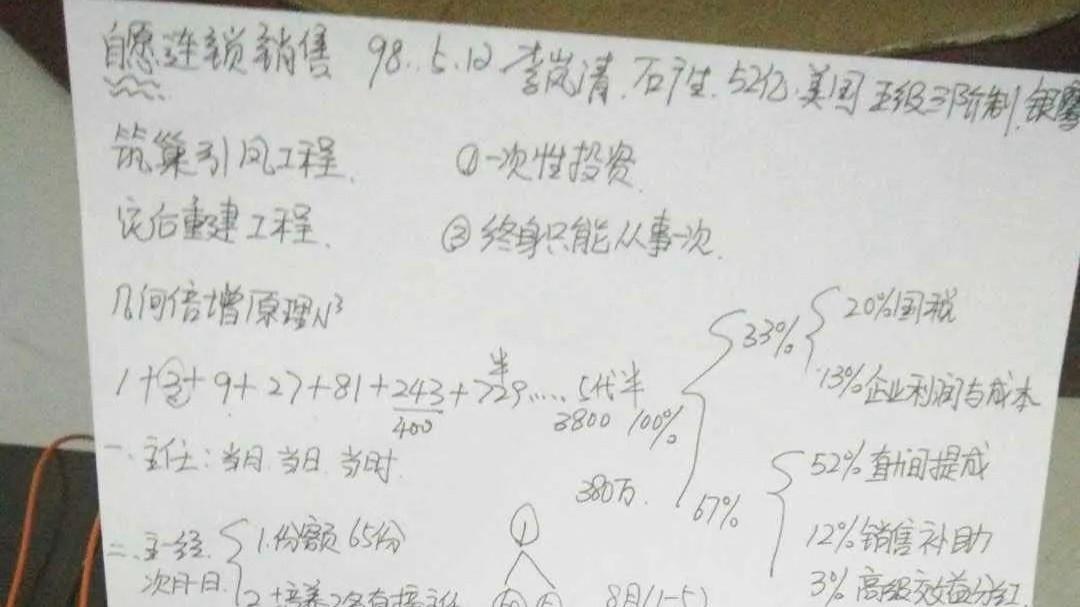 自愿连锁销售 98.5.12 李岚清.石广生.52亿.美国 五级三阶制.
筑巢引凤工程. ①一次性投资.
灾后重建工程. ③终身只能从事一次.
几何倍增原理N³
33% 20%国税
13%企业利润与成本
1+3+9+27+81+243+729..... 5代半
半
400 3800 100%
一.主任:当月.当日.当时. 52%直间提成
380万. 67%
12%销售补助
3%高级效益分红
二.主-经 1.份额65份 1
次月1日 2.培养2名直接主任 8月(1-5)